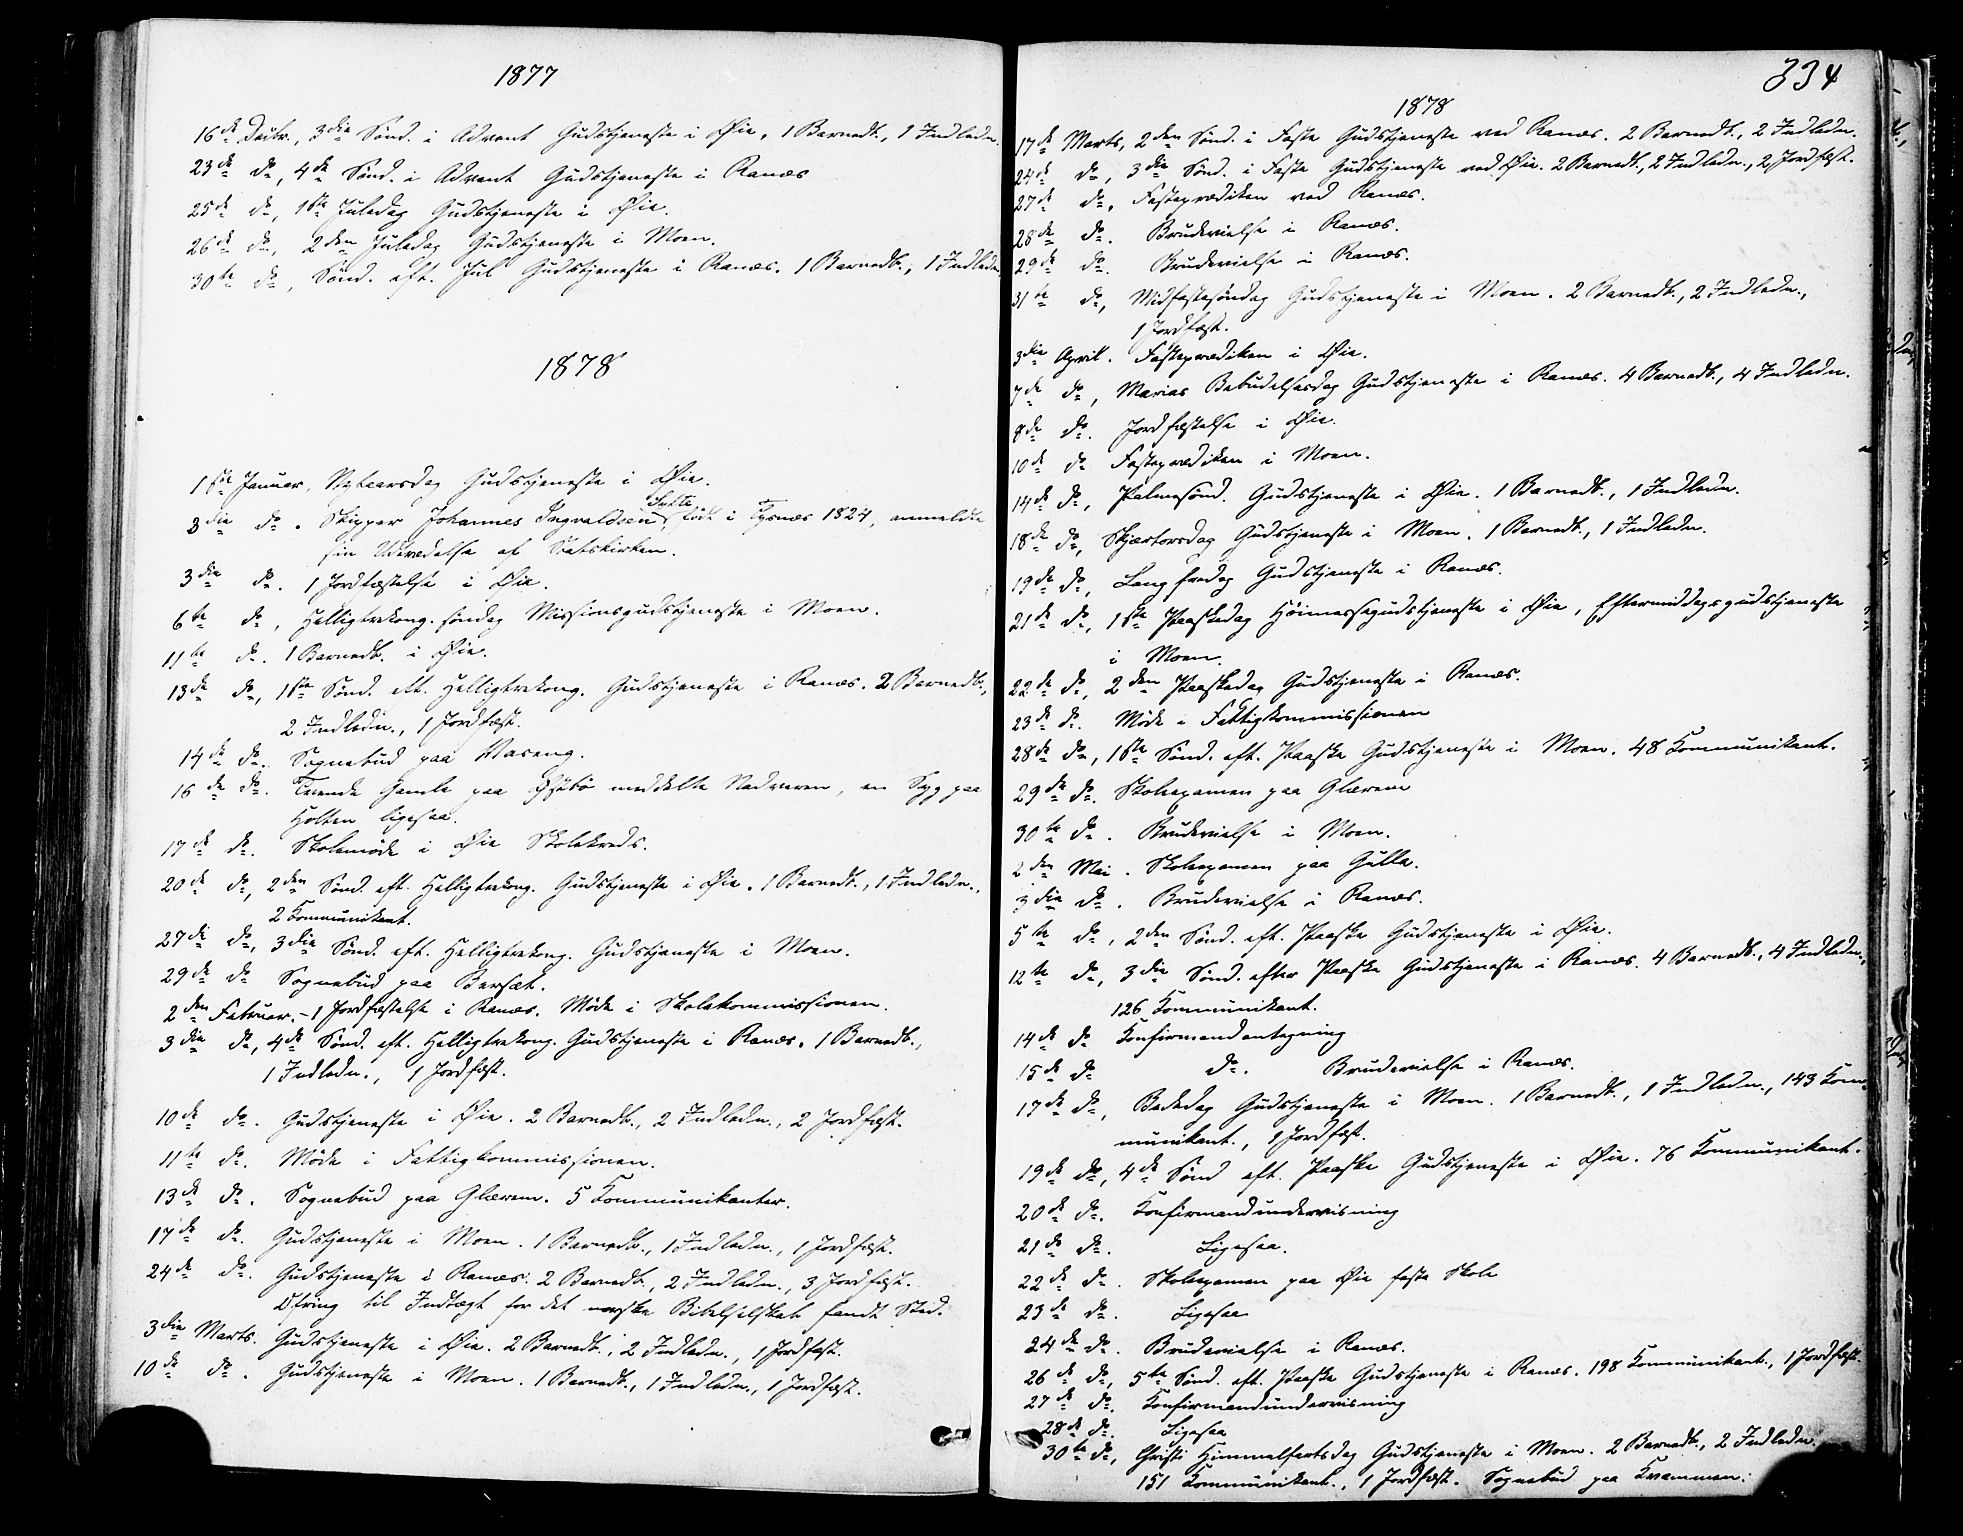 1877
16de Decbr., 3die Sönd. i Advent Gudstjeneste i Øie. 1 Barnedb., 1 Indledn.
23de do, 4de Sönd. i Advent Gudstjeneste i Ranæs
25de do, 1ste Juledag Gudstjeneste i Øie.
26de do, 2den Juledag Gudstjeneste i Moen.
30te do, Sönd. eft. Jul Gudstjeneste i Ranæs. 1 Barnedb., 1 Indledn.
1878
1ste Januar, Nytaarsdag Gudstjeneste i Øie.
3die do. Skipper Johannes Ingvaldsen Sætte, född i Tysnæs 1824, anmeldte
sin Udtrædelse af Statskirken.
3die do. 1 Jordfæstelse i Øie.
6te do, Helligtrekong. söndag Missionsgudstjeneste i Moen.
11te do. 1 Barnedb. i Øie.
13de do, 1ste Sönd. eft. Helligtrekong. Gudstjeneste i Ranæs. 2 Barnedb.,
2 Indledn., 1 Jordfæst.
14de do. Sognebud paa Vaseng.
16de do. Tvende Gamle paa Øsebö meddelte Nadveren, en Syg paa
Holten ligesaa.
17de do. Skolemöde i Øie Skolekreds.
20de do, 2den Sönd. eft. Helligtrekong. Gudstjeneste i Øie. 1 Barnedb., 1 Indledn.,
2 Kommunikant.
27de do, 3die Sönd. eft. Helligtrekong. Gudstjeneste i Moen.
29de do Sognebud paa Bersæt.
2den Februar. - 1 Jordfæstelse i Ranæs. Möde i Skolekommissionen.
3die do, 4de Sönd. eft. Helligtrekong. Gudstjeneste i Ranæs. 1 Barnedb.,
1 Indledn., 1 Jordfæst.
10de do. Gudstjeneste i Øie. 2 Barnedb., 2 Indledn., 2 Jordfæst.
11te do. Möde i Fattigkommissionen.
13de do. Sognebud paa Glærem. 5 Kommunikanter.
17de do. Gudstjeneste i Moen. 1 Barnedb., 1 Indledn., 1 Jordfæst.
24de do. Gudstjeneste i Ranæs. 2 Barnedb., 2 Indledn., 3 Jordfæst.
Ofring til Indtægt for det norske Bibelselskab fandt Sted.
3die Marts. Gudstjeneste i Øie. 2 Barnedb., 2 Indledn., 1 Jordfæst.
10de do. Gudstjeneste i Moen. 1 Barnedb., 1 Indledn., 1 Jordfæst.
334
1878
17de Marts, 2den Sönd. i Faste Gudstjeneste ved Ranæs. 2 Barnedb., 2 Indledn.
24de do, 3die Sönd. i Faste Gudstjeneste ved Øie. 2 Barnedb., 2 Indledn., 2 Jordfæst.
27de do, Fasteprædiken ved Ranæs.
28de do. Brudevielse i Ranæs.
29de do. Brudevielse i Ranæs.
31te do, Midfastesöndag Gudstjeneste i Moen. 2 Barnedb., 2 Indledn.,
1 Jordfæst.
3die April. Fasteprædiken i Øie.
7de do, Marias Bebudelsesdag Gudstjeneste i Ranæs. 4 Barnedb., 4 Indledn.
8de do. Jordfæstelse i Øie.
10de do Fasteprædiken i Moen.
14de do, Palmesönd. Gudstjeneste i Øie. 1 Barnedb., 1 Indledn.
18de do, Skjærtorsdag Gudstjeneste i Moen. 1 Barnedb., 1 Indledn.
19de do, Langfredag Gudstjeneste i Ranæs.
21de do, 1ste Paaskedag Höimessegudstjeneste i Øie, Eftermiddagsgudstjeneste
i Moen.
22de do, 2den Paaskedag Gudstjeneste i Ranæs.
23de do. Möde i Fattigkommissionen
28de do, 1ste Sönd. eft. Paaske Gudstjeneste i Moen. 48 Kommunikant.
29de do. Skoleexamen paa Glærem
30te do. Brudevielse i Moen.
2den Mai. Skoleexamen paa Gulla.
3die do. Brudevielse i Ranæs.
5te do, 2den Sönd. eft. Paaske Gudstjeneste i Øie.
12te do, 3die Sönd. efter Paaske Gudstjeneste i Ranæs. 4 Barnedb., 4 Indledn.,
126 Kommunikant.
14de do Konfirmandantegning
15de do do. Brudevielse i Ranæs.
17de do, Bededag Gudstjeneste i Moen. 1 Barnedb., 1 Indledn., 143 Kom-
munikant., 1 Jordfæst.
19de do, 4de Sönd eft. Paaske Gudstjeneste i Øie. 76 Kommunikant.
20de do. Konfirmandundervisning
21de do. Ligesaa.
22de do. Skoleexamen paa Øie faste Skole
23de do. Ligesaa
24de do. Brudevielse i Ranæs.
26de do, 5te Sönd. eft. Paaske Gudstjeneste i Ranæs. 198 Kommunikant., 1 Jordfæst.
27de do. Konfirmandundervisning
28de do. Ligesaa
30te do, Christi Himmelfartsdag Gudstjeneste i Moen. 2 Barnedb., 2 Indledn.
151 Kommunikant., 1 Jordfæst. Sognebud paa Kvammen.